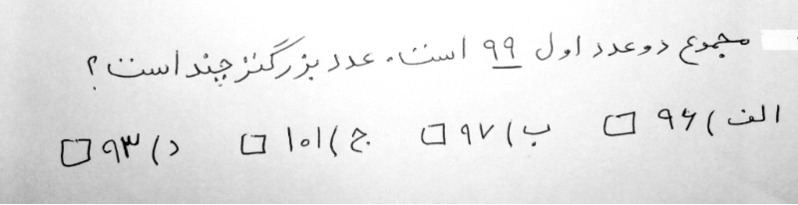 مجموع دو عدد اول ۹۹ است. عدد بزرگتر چند است؟
الف) ۹۶ ب) ۹۷ ج) ۱۰۱ د) ۹۳